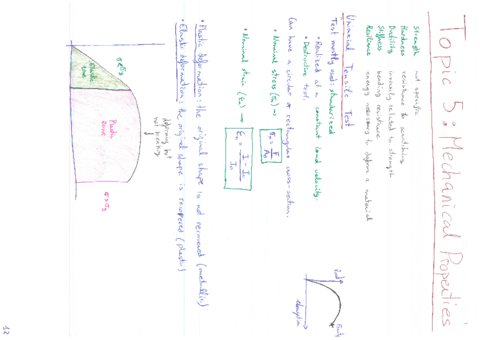 Topic 5: Mechanical Properties
Strength not specific
Hardness resistance to scratching
Ductility inversely related to strength
Stiffness bending resistance
Resilience energy resistance to deform a material
Uniaxial Tensile Test
Test mostly used: standardized
• Realized at a constant load velocity.
• Destructive test.
Can have a circular or rectangular cross-section.
• Nominal stress (σₙ) → σₙ = F / A₀
• Nominal strain (εₙ) → εₙ = l - l₀ / l₀
• Plastic deformation: the original shape is not recovered (metallic)
• Elastic deformation: the original shape is recovered (plastic)
elongation
σ<σy
Elastic zone
Plastic zone
σ>σy
deforming but not breaking
12